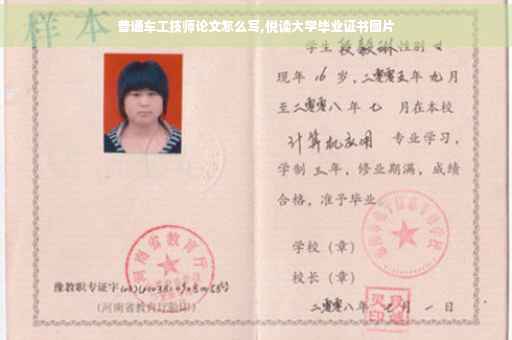 普通车工技师论文怎么写,悦读大学毕业证书图片
样本
学生段毅琳性别女
现年16岁，二零零五年九月
至二零零八年七月在本校
计算机应用 专业学习，
学制三年，修业期满，成绩
合格，准予毕业。
学校（章）
校长（章）
二零零八年七月一日
河南省教育厅
豫教职专证字
(河南省教育厅验印)